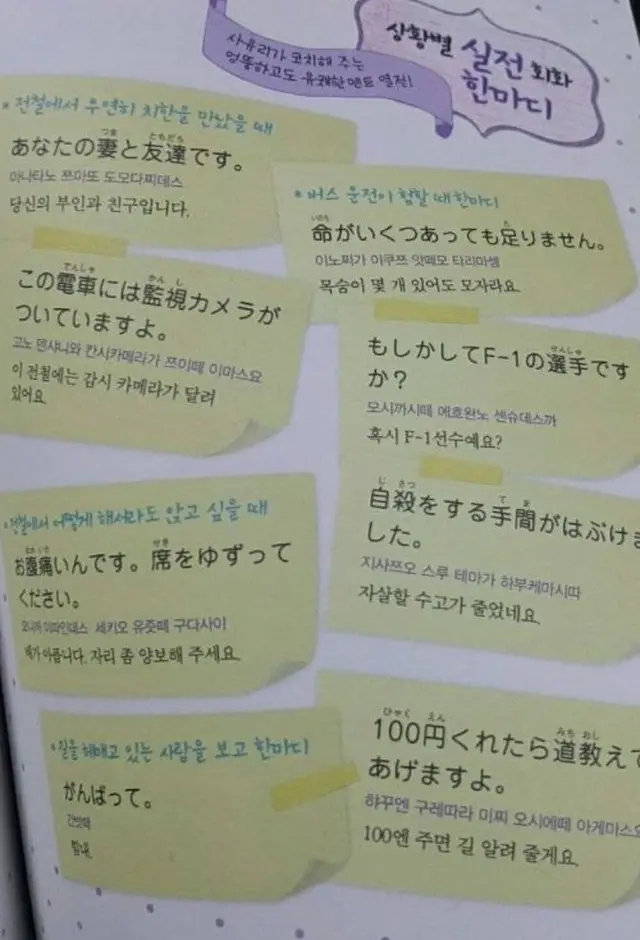 사유리가 코치해 주는
엉뚱하고도 유쾌한 멘트 열전!
상황별 실전 회화
한마디
* 전철에서 우연히 치한을 만났을 때
あなたの妻と友達です。
つま
ともだち
아나타노 쯔마또 도모다찌데스
당신의 부인과 친구입니다.
この電車には監視カメラが
でんしゃ
かんし
ついていますよ。
고노 덴샤니와 칸시카메라가 쯔이떼 이마스요
이 전철에는 감시 카메라가 달려
있어요
* 버스 운전이 험할 때 한마디
命がいくつあっても足りません。
いのち
た
이노찌가 이쿠쯔 앗떼모 타리마셍
목숨이 몇 개 있어도 모자라요.
もしかしてF-1の選手です
せんしゅ
か?
모시까시떼 에흐완노 센슈데스까
혹시 F-1선수예요?
自殺をする手間がはぶけま
じさつ
てま
した。
지사쯔오 스루 테마가 하부케마시따
자살할 수고가 줄었네요.
전철에서 어떻게 해서라도 앉고 싶을 때
お腹痛いんです。席をゆずって
せき
ください。
오나까 이따인데스 세키오 유즛떼 구다사이
배가 아픕니다. 자리 좀 양보해 주세요.
* 길을 헤매고 있는 사람을 보고 한마디
がんばって。
간밧떼
힘내.
100円くれたら道教えて
ひゃく えん
みち おし
あげますよ。
햐꾸엔 구레따라 미찌 오시에떼 아게마스요
100엔 주면 길 알려 줄게요.